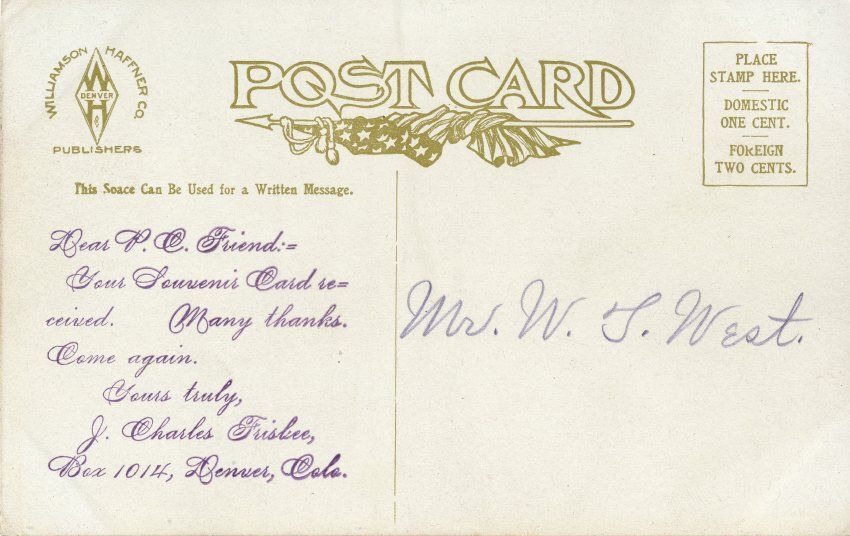 WILLIAMSON HAFFNER CO.
W
DENVER
H
PUBLISHERS
POST CARD
PLACE
STAMP HERE.
DOMESTIC
ONE CENT.
FOREIGN
TWO CENTS.
This Soace Can Be Used for a Written Message.
Dear P. C. Friend:=
Your Souvenir Card re=
ceived. Many thanks.
Come again.
Yours truly,
J. Charles Friskee,
Box 1014, Denver, Colo.
Mr. W. T. West.